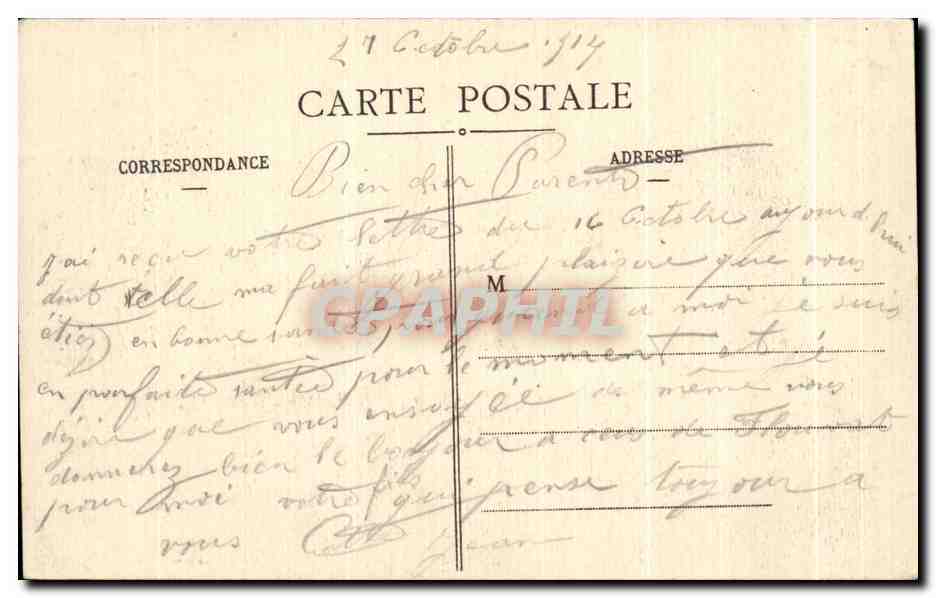 27 Octobre 1914
CARTE POSTALE
CORRESPONDANCE
ADRESSE
Bien cher Parents
j'ai reçu votre lettre du 16 Octobre aujourd'hui
dont elle ma fait grand plaisire que vous
étiez en bonne santés pour quant a moi je suis
M
en parfaite santée pour le moment et jé
dézire que vous ensoyéé de même vous
donnerez bien le bonjour a ceus de
pour moi votre fils qui pense toujour a
vous Jean
CPAPHIL